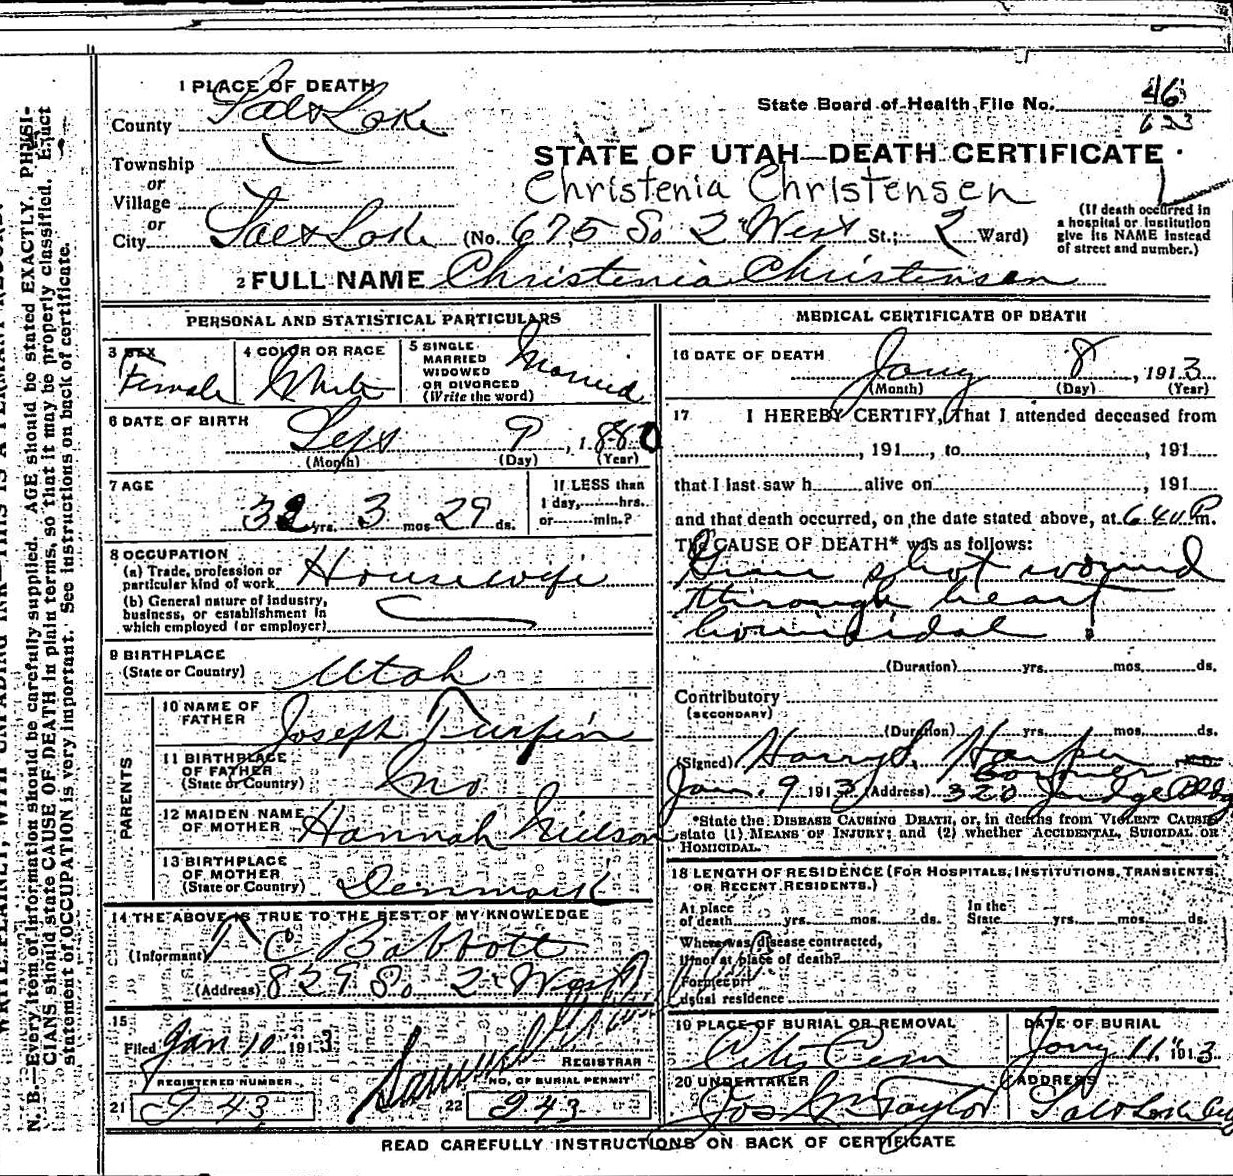 1 PLACE OF DEATH
County Salt Lake
State Board of Health File No. 46
623
Township
or
Village
or
City Salt Lake (No. 675 So 2 West St.; 2 Ward)
STATE OF UTAH—DEATH CERTIFICATE
Christenia Christensen
(If death occurred in
a hospital or institution
give its NAME instead
of street and number.)
2 FULL NAME Christenia Christensen
PERSONAL AND STATISTICAL PARTICULARS
3 SEX
Female
4 COLOR OR RACE
White
5 SINGLE
MARRIED
WIDOWED
OR DIVORCED
(Write the word)
Married
6 DATE OF BIRTH
Sept 9, 1880
(Month) (Day) (Year)
7 AGE
32 yrs. 3 mos 29 ds.
If LESS than
1 day, hrs.
or min.?
8 OCCUPATION
(a) Trade, profession or
particular kind of work Housewife
(b) General nature of industry,
business, or establishment in
which employed (or employer)
9 BIRTHPLACE
(State or Country) Utah
PARENTS
10 NAME OF
FATHER Joseph Turpin
11 BIRTHPLACE
OF FATHER
(State or Country) Mo
12 MAIDEN NAME
OF MOTHER Hannah Neilson
13 BIRTHPLACE
OF MOTHER
(State or Country) Denmark
14 THE ABOVE IS TRUE TO THE BEST OF MY KNOWLEDGE
(Informant) C Babbott
(Address) 829 So 2 West
15
Filed Jan 10 1913
REGISTRAR
REGISTERED NUMBER
21 943
NO. OF BURIAL PERMIT
22 943
MEDICAL CERTIFICATE OF DEATH
16 DATE OF DEATH
Jany 8, 1913
(Month) (Day) (Year)
17 I HEREBY CERTIFY, That I attended deceased from
, 191 , to , 191
that I last saw h alive on , 191
and that death occurred, on the date stated above, at 640 P m.
The CAUSE OF DEATH* was as follows:
Gun shot wound
through heart
homicidal
(Duration) yrs. mos. ds.
Contributory
(SECONDARY)
(Duration) yrs. mos. ds.
(Signed) Harry S. Harper M.D.
Coroner
Jan. 9 1913 (Address) 320 Judge Bldg
*State the DISEASE CAUSING DEATH, or, in deaths from VIOLENT CAUSES
state (1) MEANS OF INJURY; and (2) whether ACCIDENTAL, SUICIDAL OR
HOMICIDAL.
18 LENGTH OF RESIDENCE (FOR HOSPITALS, INSTITUTIONS, TRANSIENTS
OR RECENT RESIDENTS.)
At place
of death yrs. mos. ds.
In the
State yrs. mos. ds.
Where was disease contracted,
if not at place of death?
Former or
usual residence
19 PLACE OF BURIAL OR REMOVAL
City Cem
DATE OF BURIAL
Jany 11" 1913
20 UNDERTAKER
Jos Wm Taylor
ADDRESS
Salt Lake City
READ CAREFULLY INSTRUCTIONS ON BACK OF CERTIFICATE
N. B.—Every item of information should be carefully supplied. AGE should be stated EXACTLY. PHYSI-
CIANS should state CAUSE OF DEATH in plain terms, so that it may be properly classified. Exact
statement of OCCUPATION is very important. See instructions on back of certificate.